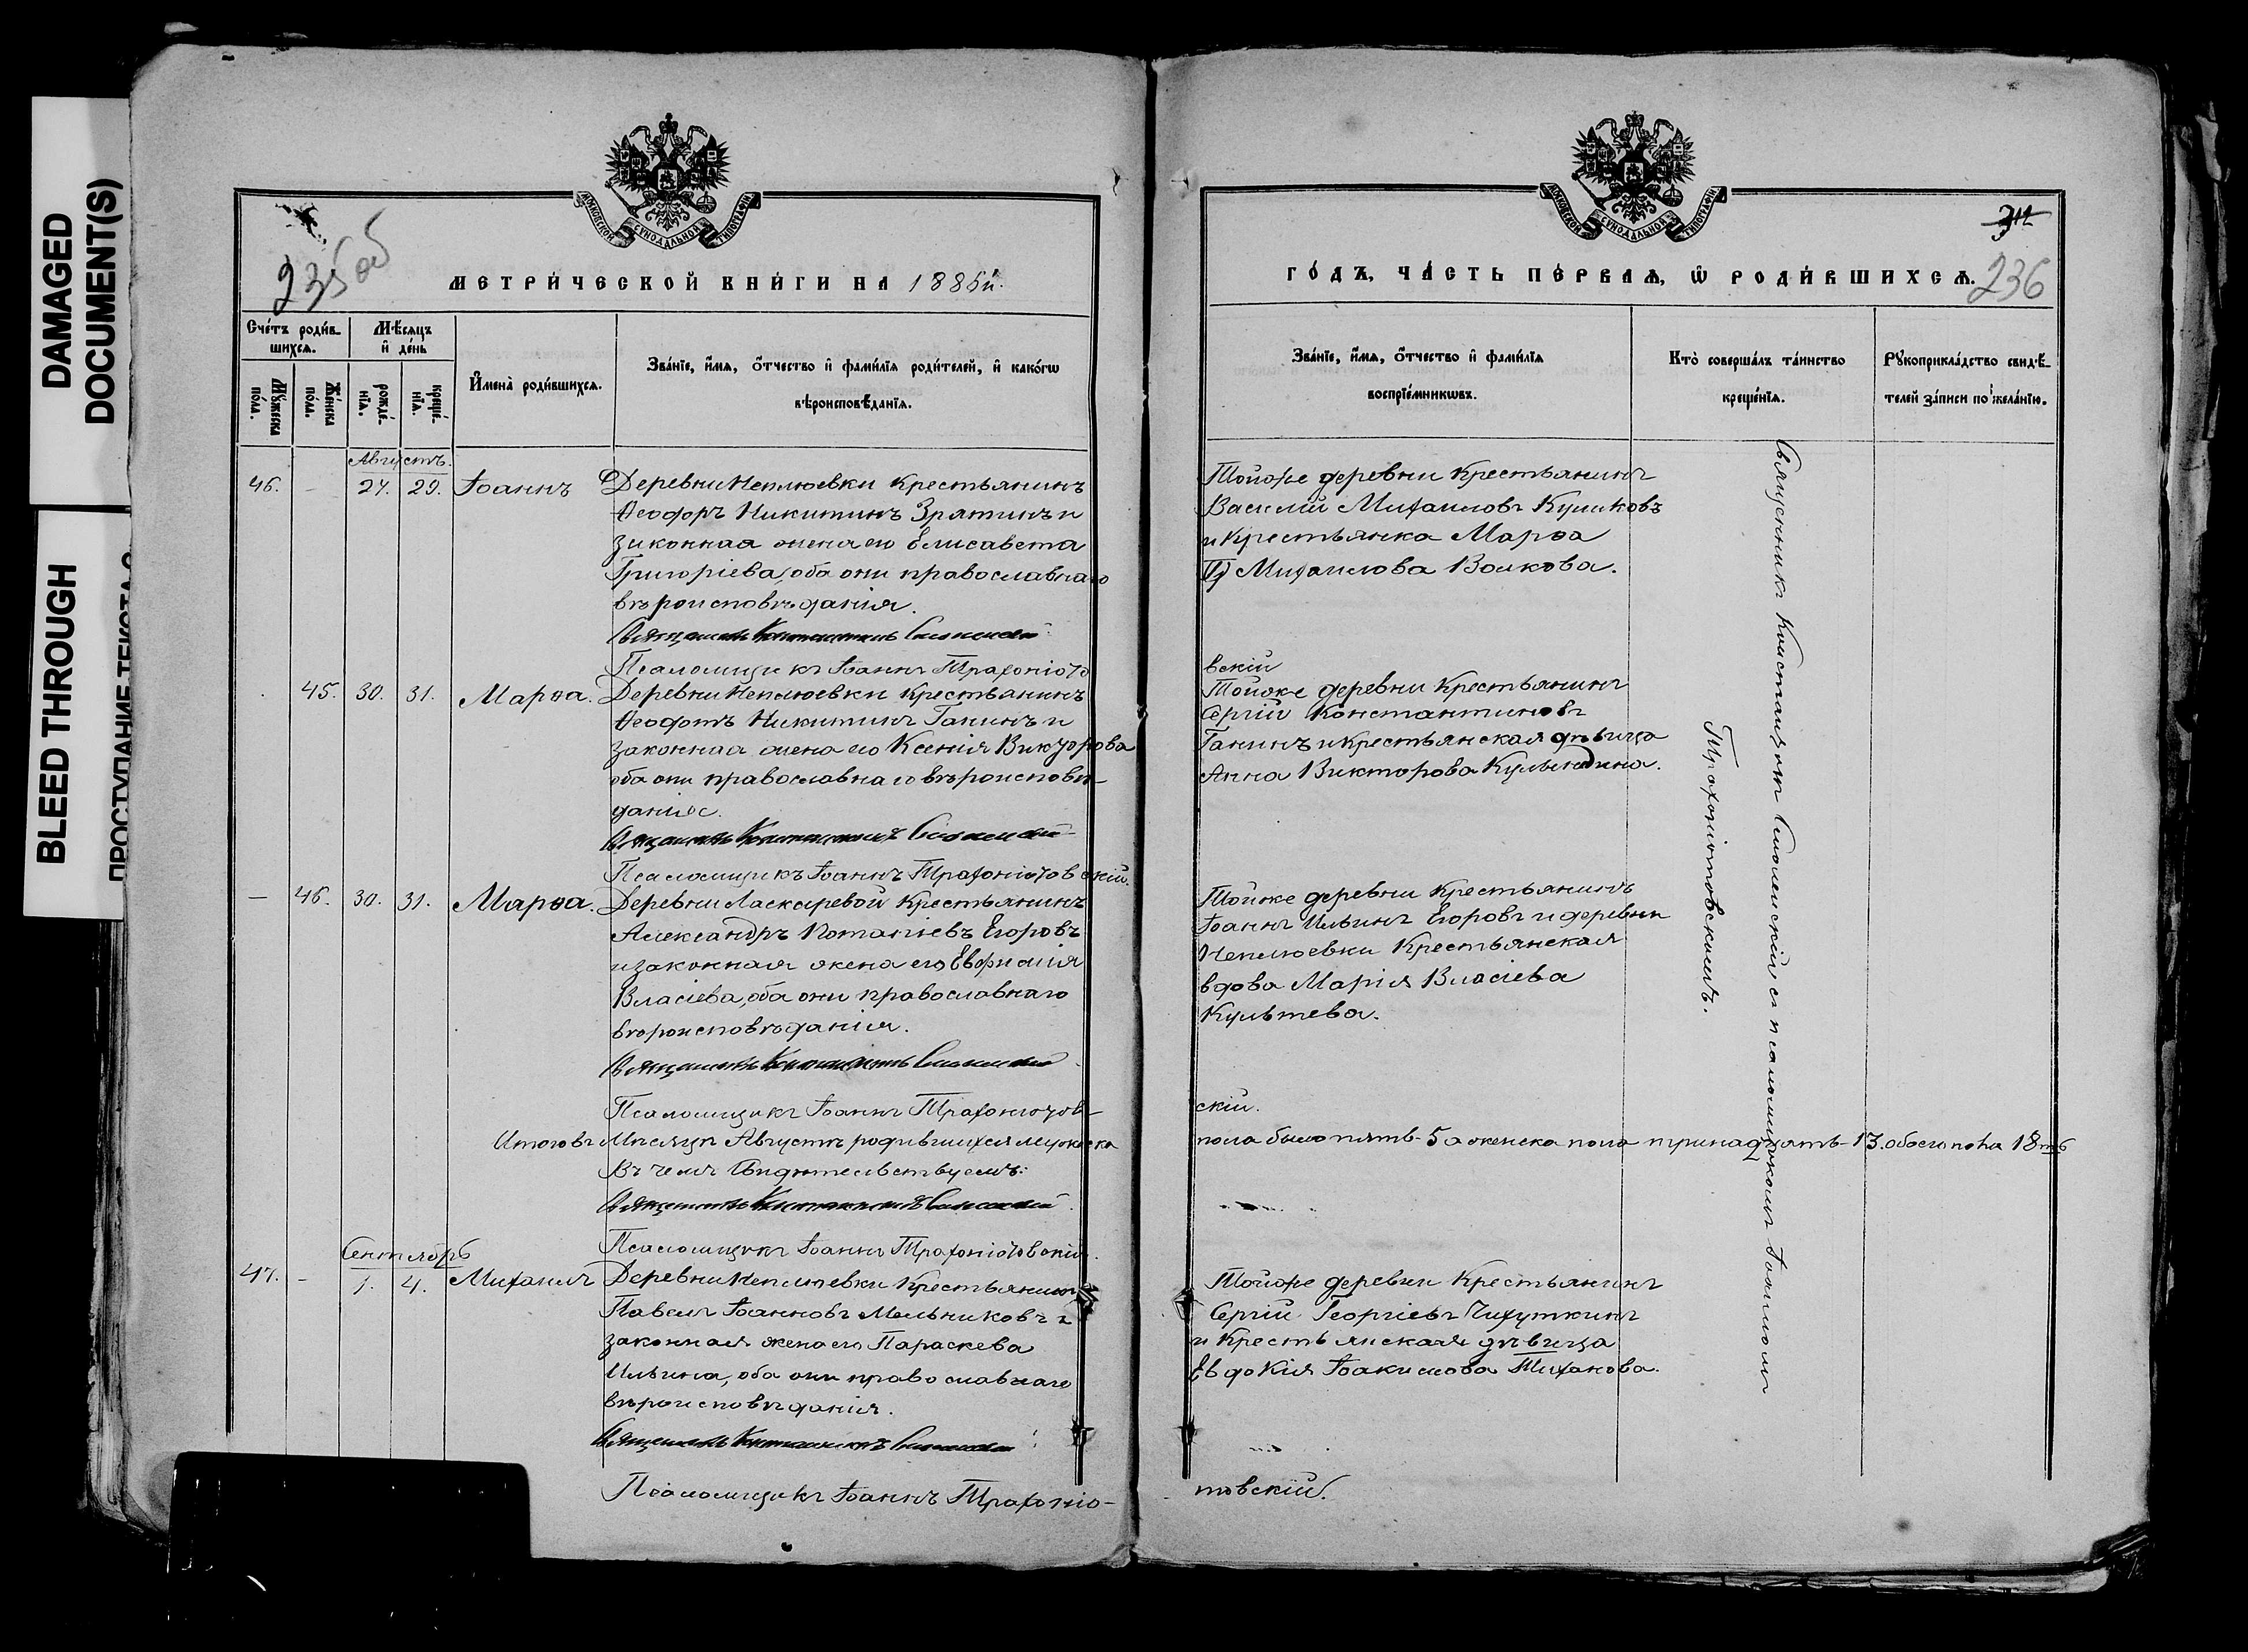 DAMAGED
DOCUMENT(S)
BLEED THROUGH
ПРОСТУПАНИЕ ТЕКСТА
МОСКОВСКОЙ СѴНОДАЛЬНОЙ ТИПОГРАФІИ
235об
МЕТРИ́ЧЕСКОЙ КНИ́ГИ НА 1885й.
Сче́тъ роди́в-
шихсѧ.
Мѣ́сѧцъ
и҆ де́нь
Мꙋ́жеска
по́ла.
Же́нска
по́ла.
рожде́-
нїѧ.
креще́-
нїѧ.
И҆мена̀ роди́вшихсѧ.
Зва́нїе, и҆́мѧ, ѻ҆́тчество и҆ фами́лїѧ роди́телей, и҆ како́гѡ
вѣроисповѣ́данїѧ.
Августъ.
46. - 24. 29. Іоаннъ Деревни Неплюевки крестьянинъ
Ѳеодоръ Никитинъ Зрятинъ и
законная жена его Елисавета
Григоріева, оба они православнаго
вѣроисповѣданія.
Священникъ Константинъ Смоленскій
Псаломщикъ Іоаннъ Трафоніото
45. 30. 31. Марѳа. Деревни Неплюевки крестьянинъ
Ѳеодотъ Никитинъ Ганинъ и
законная жена его Ксенія Викторова
оба они православнаго вѣроисповѣ-
данія.
Священникъ Константинъ Смоленскій
Псаломщикъ Іоаннъ Трафоніотовскій.
— 46. 30. 31. Марѳа. Деревни Ласкаревой крестьянинъ
Александръ Потапіевъ Егоровъ
и законная жена его Евфимія
Власіева, оба они православнаго
вѣроисповѣданія.
Священникъ Константинъ Смоленскій
Псаломщикъ Іоаннъ Трафоніотов-
Итого въ Мѣсяцѣ Августѣ родившихся мужеска
Въ чемъ Свидѣтельствуемъ:
Священникъ Константинъ Смоленскій
Псаломщикъ Іоаннъ Трафоніотовскій.
Сентябрь
47. - 1. 4. Михаилъ Деревни Неплюевки крестьянинъ
Павелъ Іоанновъ Мельниковъ и
законная жена его Параскева
Ильина, оба они православнаго
вѣроисповѣданія.
Священникъ Константинъ Смоленскій
Псаломщикъ Іоаннъ Трафоніо-
МОСКОВСКОЙ СѴНОДАЛЬНОЙ ТИПОГРАФІИ
ГО́ДЪ, ЧА́СТЬ ПЕ́РВАѦ, Ѡ҆ РОДИ́ВШИХСѦ.
236
Зва́нїе, и҆́мѧ, ѻ҆́тчество и҆ фами́лїѧ
воспрїе́мникѡвъ.
Кто̀ соверша́лъ та́инство
креще́нїѧ.
Рꙋкоприкла́дство свидѣ́-
телей за́писи по жела́нїю.
Тойже деревни крестьянинъ
Василій Михаиловъ Куликовъ
и крестьянка Марѳа
Михаилова Волкова.
вскій
Тойже деревни крестьянинъ
Сергій Константиновъ
Ганинъ и крестьянская дѣвица
Анна Викторова Кульнодина.
Тойже деревни крестьянинъ
Іоаннъ Ильинъ Егоровъ и деревни
Неплюевки крестьянская
вдова Марія Власіева
Культева.
скій.
пола было пять - 5 а женска пола тринадцать - 13. обоего пола 18ть
Тойже деревни крестьянинъ
Сергій Георгіевъ Чихуткинъ
и крестьянская дѣвица
Евдокія Іоакимова Тиханова.
товскій.
Священникъ Константинъ Смоленскій съ псаломщикомъ Іоанномъ
Трафоніотовскимъ.